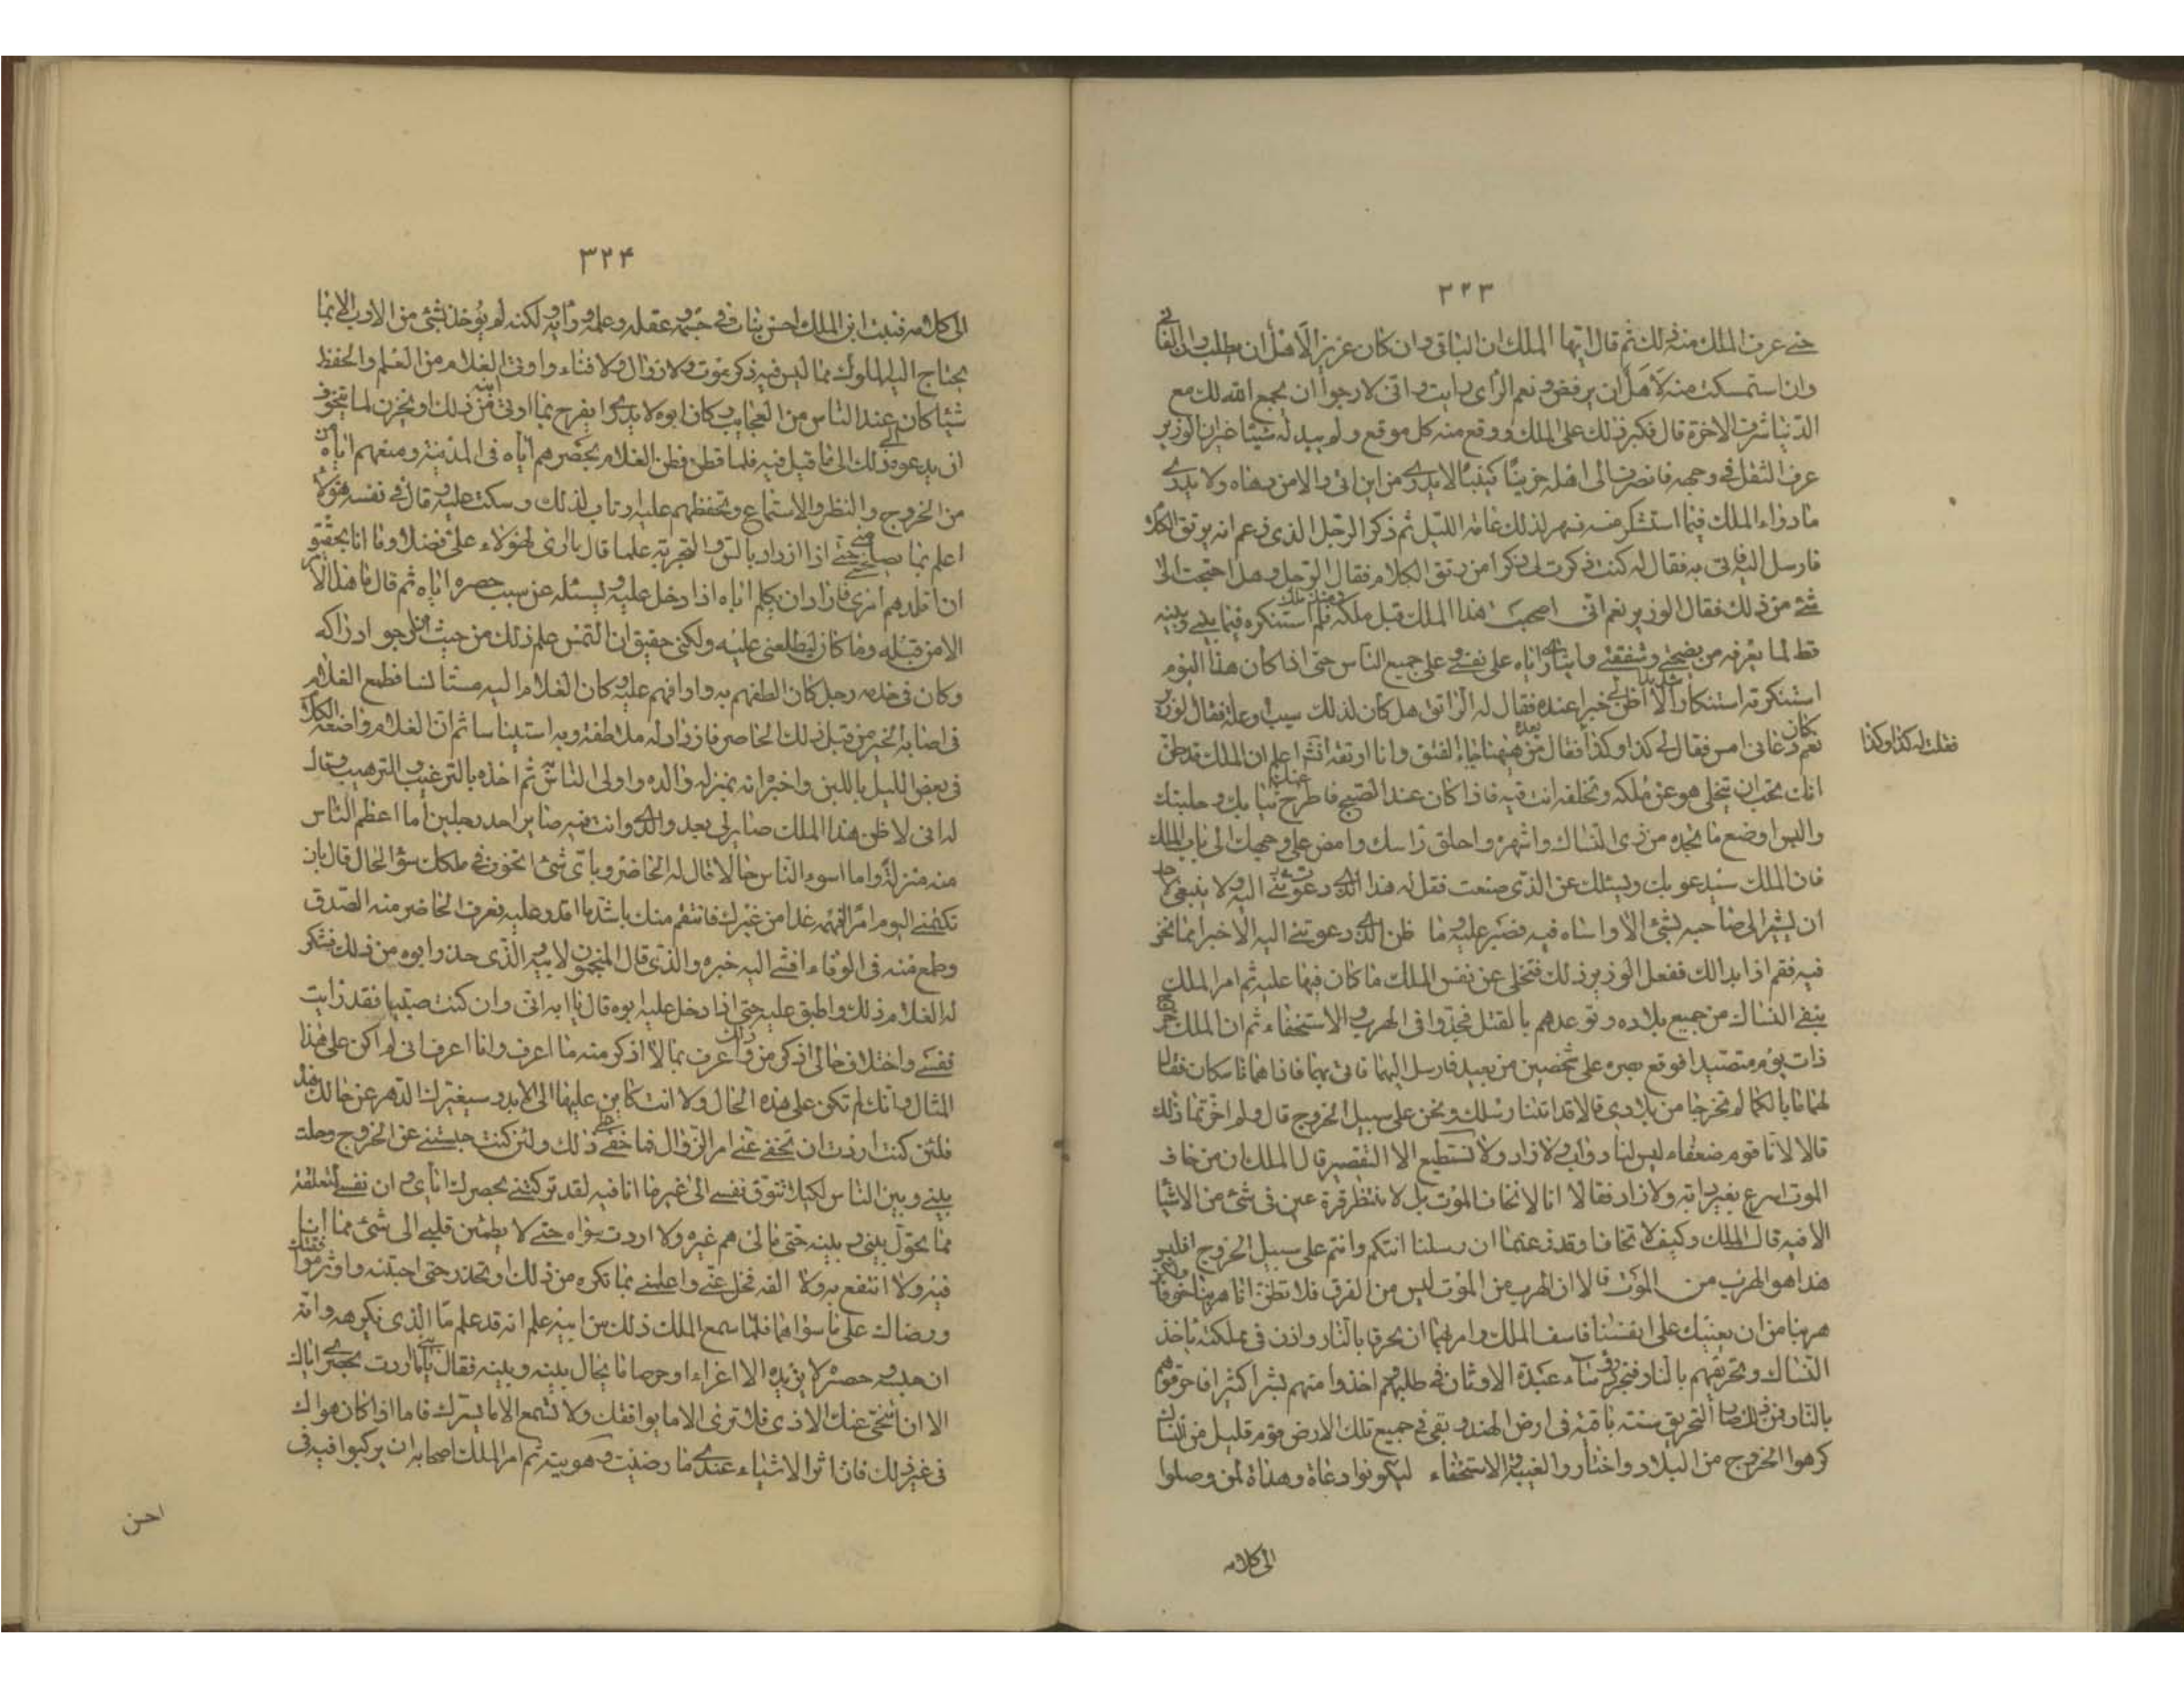 ٣٢٣
حتى عرف الملك منه ذلك ثم قال ايها الملك ان الباقى وان كان عزيزا لأهل ان يطلب وان الفانى
وان استمسكت منه لأهل ان يرفض ونعم الرأى رايت وانى لارجوا ان يجمع الله لك مع
الدنيا شرف الاخرة قال فكبر ذلك على الملك ووقع منه كل موقع ولم يبد له شيئا غير ان الوزير
عرف الثقل فى وجهه فانصرف الى اهله حزينا كئيبا لا يدرى من اين اتى ولا من دهاه ولا يدرى
ما دواء الملك فيما استنكر منه فسهر لذلك عامة الليل ثم ذكر الرجل الذى زعم انه يرتق الكلام
فارسل اليه فاتى به فقال له كنت ذكرت لى ذكرا من رتق الكلام فقال الرجل وهل احتجت الى
شئ من ذلك فقال الوزير نعم انى اصحب هذا الملك قبل ملكه فلم استنكره فيما بينى وبينه
قط لما يعرفه من نصيحتى وشفقتى وايثارى اياه على نفسى وعلى جميع الناس حتى اذا كان هذا اليوم
استنكرته استنكارا شديدا لا اظن لى خيرا عنده فقال له الراتق هل كان لذلك سبب وعلة فقال الوزير
نعم دعانى امس فقال لى كذا وكذا فقال من ههنا جاء الفتق وانا ارتقه انشا اعلم ان الملك قد ظن
فقلت له كذا وكذا
انك تحب ان يتخلى هو عن ملكه وتخلفه انت فيه فاذا كان عند الصبح فاطرح عنك ثيابك وحليتك
والبس اوضع ما تجده من زى النساك واشهره واحلق راسك وامض على وجهك الى باب الملك
فان الملك سيدعو بك ويسئلك عن الذى صنعت فقل له هذا الذى دعوتنى اليه ولا ينبغى لاحد
ان يشير الى صاحبه بشئ الا واساه فيه وصبر عليه وما اظن الذى دعوتنى اليه الا خيرا مما نحن
فيه فقم اذا بدا لك ففعل الوزير ذلك فتخلى عن نفس الملك ما كان فيها عليه ثم امر الملك
بنفى النساك من جميع بلاده وتوعدهم بالقتل فجدوا فى الهرب والاستخفاء ثم ان الملك خرج
ذات يوم متصيدا فوقع بصره على شخصين من بعيد فارسل اليهما فاتى بهما فاذا هما ناسكان فقال
لهما ما بالكما لم تخرجا من بلادى قالا قد اتتنا رسلك ونحن على سبيل الخروج قال ولم اخرتما ذلك
قالا لانا قوم ضعفاء ليس لنا دواب ولا زاد ولا نستطيع الا التقصير قال الملك ان من خاف
الموت اسرع بغير دابة ولا زاد فقالا انا لا نخاف الموت بل لا ننتظر قرة عين فى شئ من الاشياء
الا فيه قال الملك وكيف لا تخافا وقد زعمتما ان رسلنا اتتكم وانتم على سبيل الخروج افليس
هذا هو الهرب من الموت قالا ان الهرب من الموت ليس من الفرق فلا تظن انا هربنا خوفا ولكنا
هربنا من ان نعينك على انفسنا فاسف الملك وامر بهما ان يحرقا بالنار واذن فى مملكته باخذ
النساك وتحريقهم بالنار فتجرد رؤساء عبدة الاوثان فى طلبهم واخذوا منهم بشرا كثيرا فاحرقوهم
بالنار فمن ذلك صار التحريق سنة باقية فى ارض الهند وبقى فى جميع تلك الارض قوم قليل من النساك
كرهوا الخروج من البلاد واختاروا الغيبة والاستخفاء ليكونوا دعاة وهداة لمن وصلوا
الى كلامه
٣٢٤
الى كلامه فنبت ابن الملك احسن نبات فى جسمه وعقله وعلمه ورأيه ولكنه لم يؤخذ بشئ من الاداب الا بما
يحتاج اليه الملوك مما ليس فيه ذكر موت ولا زوال ولا فناء واوتى الغلام من العلم والحفظ
شيئا كان عند الناس من العجايب وكان ابوه لا يدرى ايفرح بما اوتى ابنه من ذلك او يحزن لما يتخوف
ان يدعوه ذلك الى ما قيل فيه فلما فطن الغلام بحصرهم اياه فى المدينة ومنعهم اياه من
من الخروج والنظر والاستماع وتحفظهم عليه ارتاب لذلك وسكت عليه وقال فى نفسه هؤلاء
اعلم بما يصلحنى حتى اذا ازداد بالسن والتجربة علما قال ما ارى لهؤلاء على فضلا وما انا بحقيق
ان اقلدهم امرى فاراد ان يكلم اباه اذا دخل عليه ويسئله عن سبب حصره اياه ثم قال ما هذا الامر
الا من قبله وما كان ليطلعنى عليه ولكنى حقيق ان التمس علم ذلك من حيث ارجو ادراكه
وكان فى خدمه رجل كان الطفهم به وارافهم عليه وكان الغلام اليه مستانسا فطمع الغلام
فى اصابة الخبر من قبل ذلك الحاضن فازداد له ملاطفة وبه استيناسا ثم ان الغلام واضعه الكلام
فى بعض الليل باللين واخبره انه بمنزلة والده واولى الناس به ثم اخذه بالترغيب والترهيب وقال
له انى لا ظن هذا الملك صايرلى بعد والدى وانت فيه صاير احد رجلين اما اعظم الناس
منه منزلة واما اسوء الناس حالا قال له الحاضن وباى شئ اتخوف فى ملكك سؤ الحال قال بان
تكتمنى اليوم امرا افهمه غدا من غيرك فانتقم منك باشد ما اقدر عليه فعرف الحاضن منه الصدق
وطمع منه فى الوفاء افشى اليه خبره والذى قال المنجمون لابيه والذى حذر ابوه من ذلك فشكر
له الغلام ذلك واطبق عليه حتى اذا دخل عليه ابوه قال يا ابه انى وان كنت صبيا فقد رايت
فى نفسى واختلاف حالى اذكر من ذلك واعرف بما لا اذكر منه ما اعرف وانا اعرف انى لم اكن على هذا
المثال وانك لم تكن على هذه الحال ولا انت كاين عليها الى الابد وسيغيرك الدهر عن حالك هذه
فلئن كنت اردت ان تخفى عنى امر الزوال فما خفى على ذلك ولئن كنت حبستنى عن الخروج وحلت
بينى وبين الناس لكيلا تتوق نفسى الى غير ما انا فيه لقد تركتنى بحصرك اياى وان نفسى لتعلقة
مما تحول بينى وبينه حتى ما لى هم غيره ولا اردت سواه حتى لا يطمئن قلبى الى شئ مما انا
فيه ولا انتفع به ولا الفه فخل عنى واعلمنى بما تكره من ذلك وتحذر حتى اجتنبه واوثر موافقتك
ورضاك على ما سواهما فلما سمع الملك ذلك من ابنه علم انه قد علم ما الذى يكرهه وانه
ان حبسه وحصره لا يزيده الا اغراء وحرصا ما يحال بينه وبينه فقال يا بنى ما اردت بحصرى اياك
الا ان انحى عنك الاذى فلا ترى الا ما يوافقك ولا تسمع الا ما يسرك فاما اذا كان هواك
فى غير ذلك فان اثر الاشياء عندى ما رضيت وهويت ثم امر الملك اصحابه ان يركبوا فيه فى
احسن